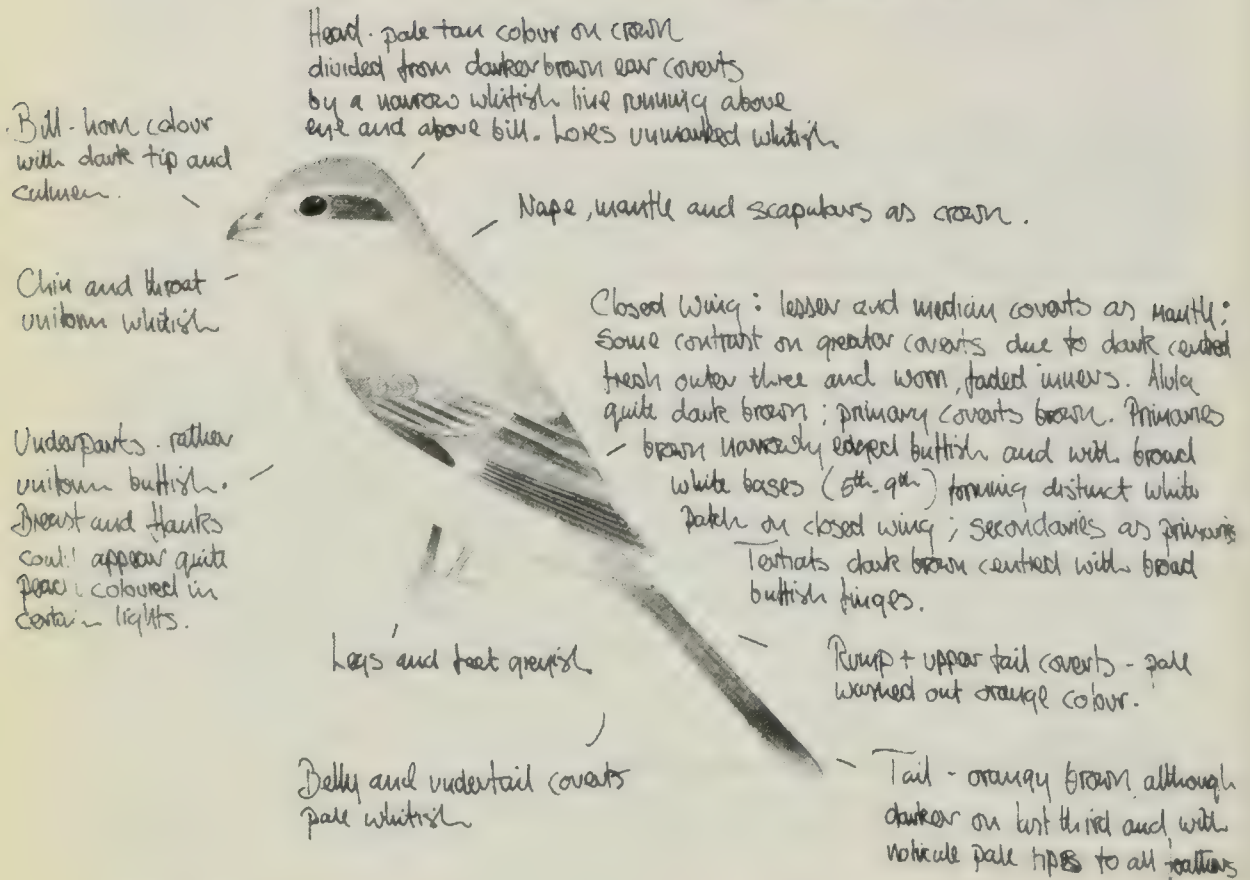 Head - pale tan colour on crown
divided from darker brown ear coverts
by a narrow whitish line running above
eye and above bill. Lores unmarked whitish
Bill - horn colour
with dark tip and
culmen.
Nape, mantle and scapulars as crown.
Chin and throat
uniform whitish
Closed wing: lesser and median coverts as mantle;
Some contrast on greater coverts due to dark centred
fresh outer three and worn, faded inners. Alula
quite dark brown; primary coverts brown. Primaries
brown narrowly edged buffish and with broad
white bases (5th-9th) forming distinct white
patch on closed wing; secondaries as primaries
Tertials dark brown centred with broad
buffish fringes.
Underparts - rather
uniform buffish.
Breast and flanks
could appear quite
peach coloured in
certain lights.
Legs and feet greyish
Rump + upper tail coverts - pale
washed out orange colour.
Belly and undertail coverts
pale whitish
Tail - orangy brown although
darker on last third and with
pale tips to all feathers